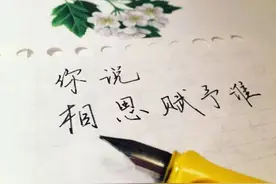 你说
相思赋予谁